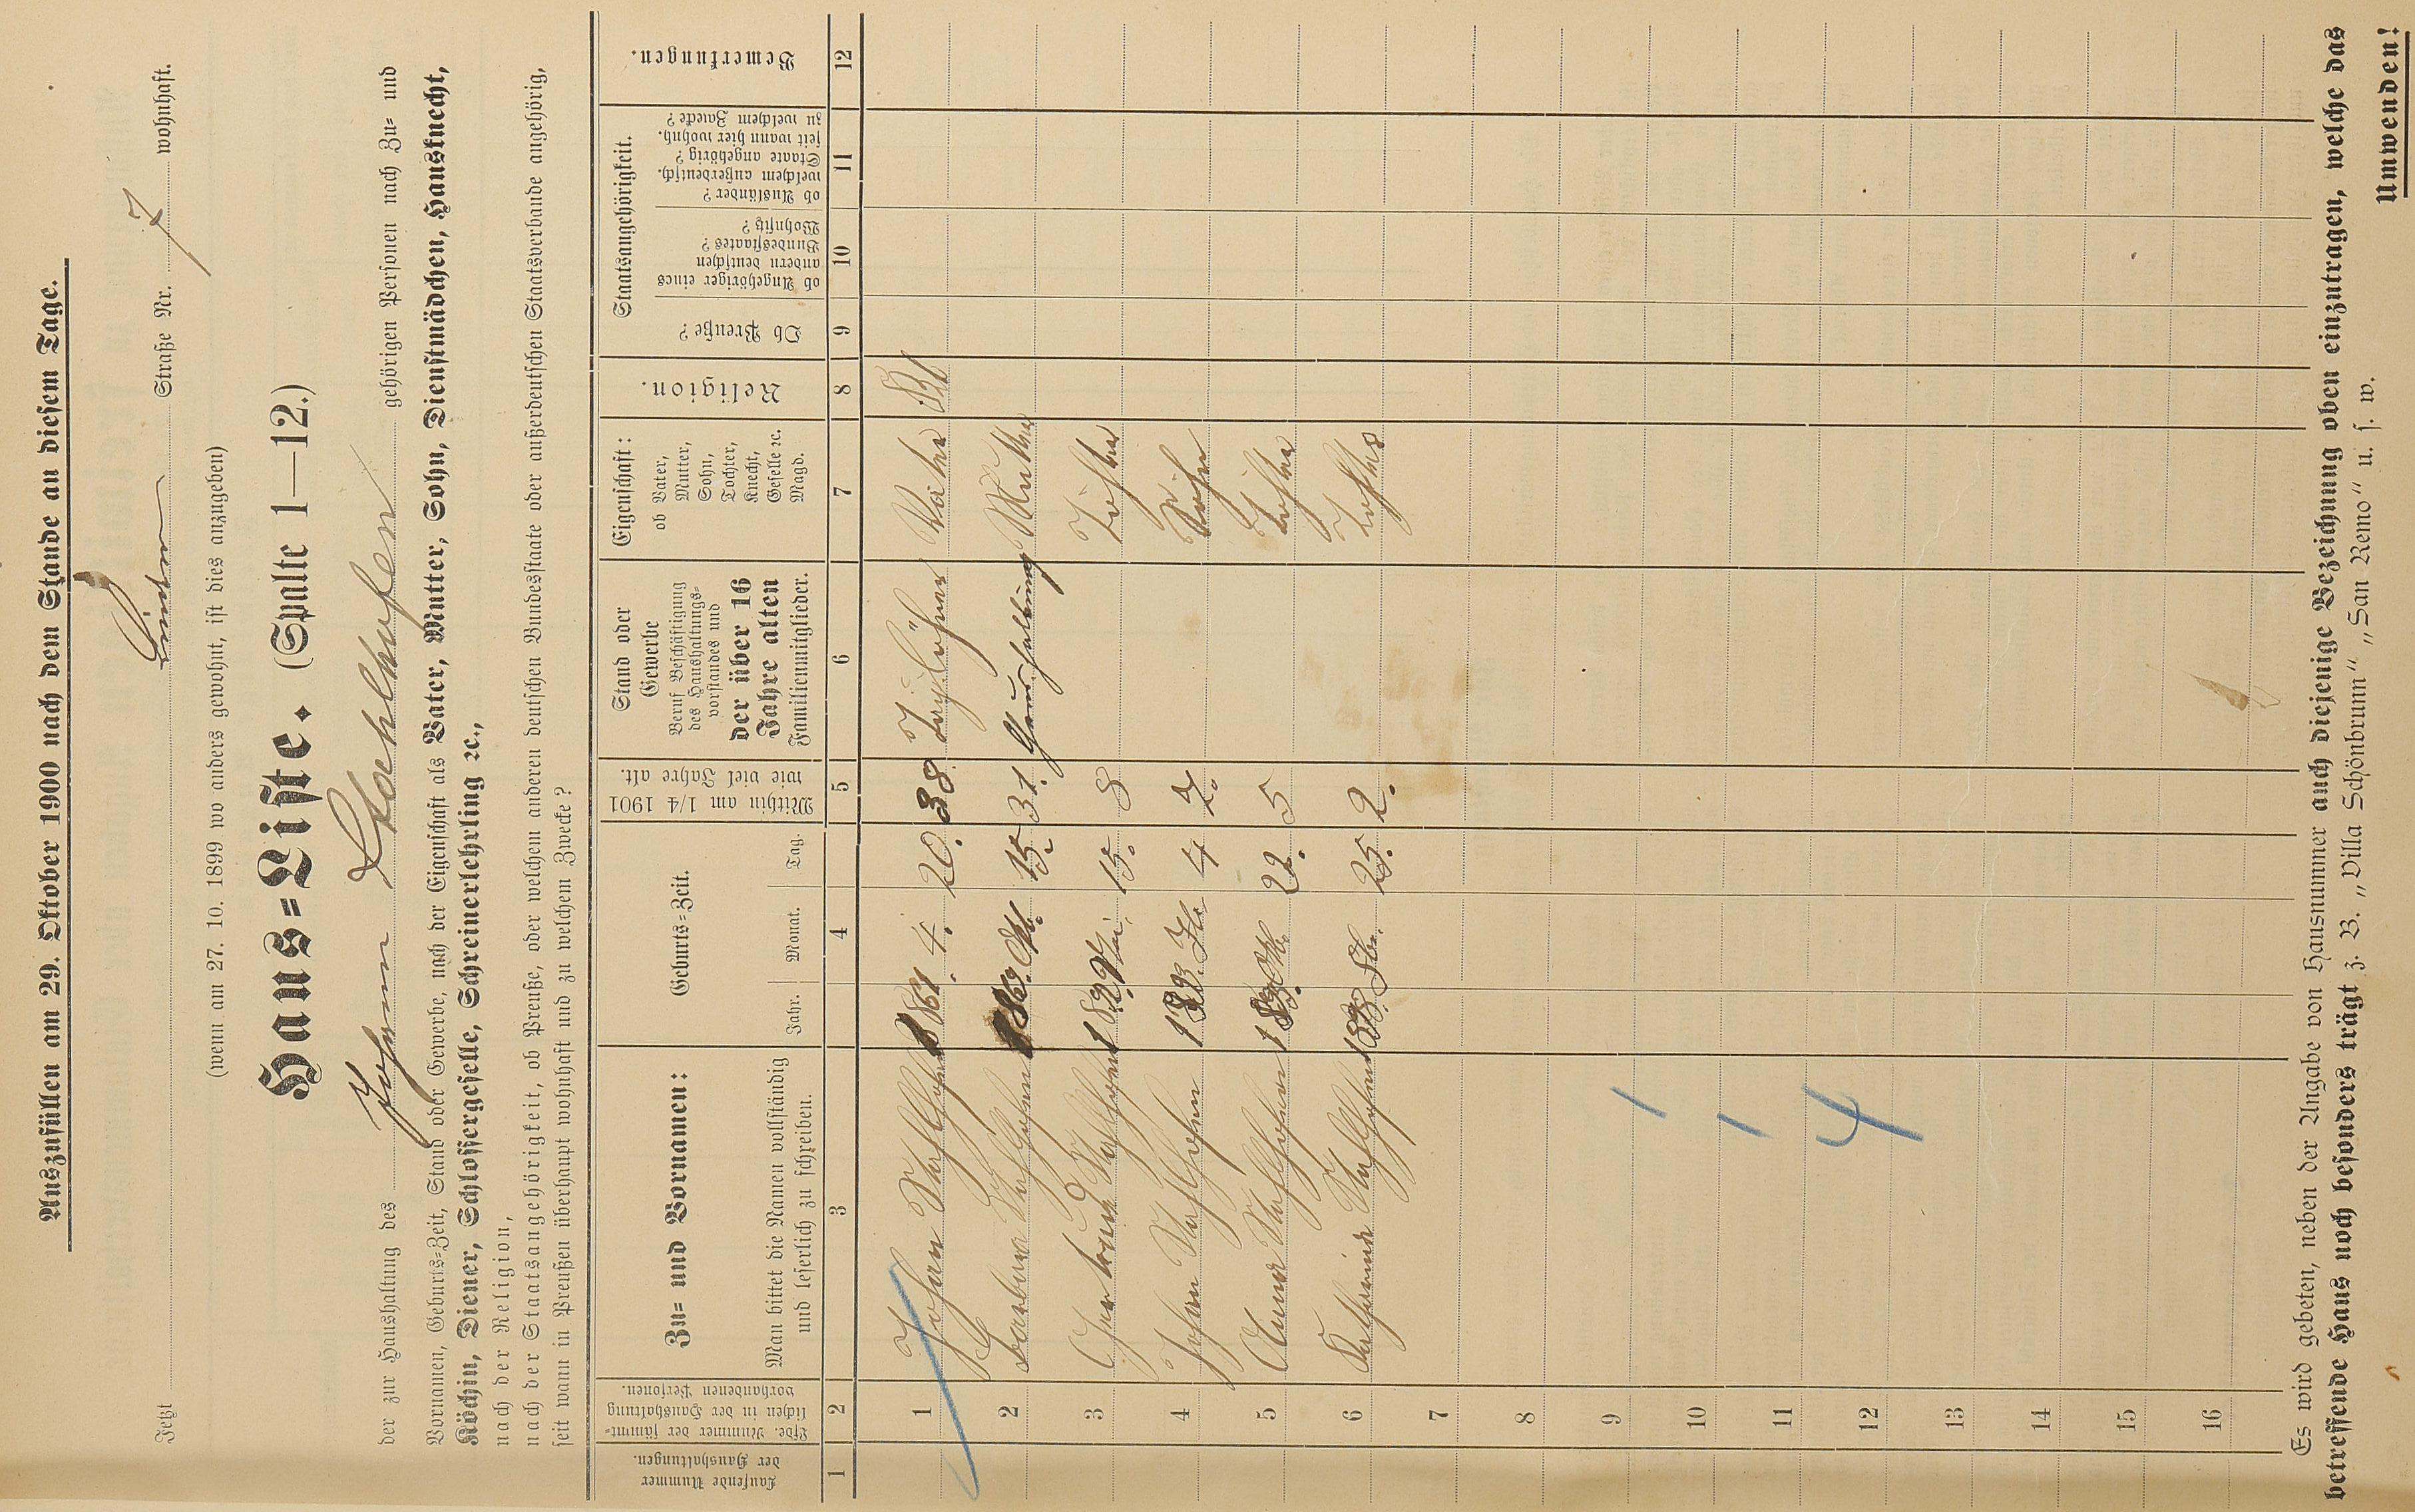 Auszufüllen am 29. Oktober 1900 nach dem Stande an diesem Tage.
Jetzt Linden Straße Nr. 7 wohnhaft.
(wenn am 27. 10. 1899 wo anders gewohnt, ist dies anzugeben)
Haus=Liste. (Spalte 1—12.)
der zur Haushaltung des Johann Stahlhofen gehörigen Personen nach Zu= und
Vornamen, Geburts=Zeit, Stand oder Gewerbe, nach der Eigenschaft als Vater, Mutter, Sohn, Dienstmädchen, Hausknecht,
Köchin, Diener, Schlossergeselle, Schreinerlehrling ꝛc.,
nach der Religion,
nach der Staatsangehörigkeit, ob Preuße, oder welchem anderen deutschen Bundesstaate oder außerdeutschen Staatsverbande angehörig,
seit wann in Preußen überhaupt wohnhaft und zu welchem Zwecke?
Laufende Nummer
der Haushaltungen.
Lfde. Nummer der sämmt=
lichen in der Haushaltung
vorhandenen Personen.
Zu= und Vornamen:
Man bittet die Namen vollständig
und leserlich zu schreiben.
Geburts=Zeit.
Jahr. Monat. Tag.
Mithin am 1/4 1901
wie viel Jahre alt.
Stand oder
Gewerbe
Beruf Beschäftigung
des Haushaltungs=
vorstandes und
der über 16
Jahre alten
Familienmitglieder.
Eigenschaft:
ob Vater,
Mutter,
Sohn,
Tochter,
Knecht,
Geselle ꝛc.
Magd.
Religion.
Staatsangehörigkeit.
Ob Preuße?
ob Angehöriger eines
andern deutschen
Bundesstaates?
Wohnsitz?
ob Ausländer?
welchem außerdeutsch.
Staate angehörig?
seit wann hier wohnh.
zu welchem Zwecke?
Bemerkungen.
1 2 3 4 5 6 7 8 9 10 11 12
1 Johan Stahlhofen 4. 20. 38. Taglöhner Vater
2 Barbara Stahlhofen 15. 31. Haushaltung Mutter
3 Stahlhofen 15. 8 Tochter
4 Johan Stahlhofen 4 7. Sohn
5 Anna Stahlhofen 22. 5 Tochter
6 Katharina Stahlhofen 25. 2. Tochter
7
8
9
10
11
12
13
14
15
16
4
Es wird gebeten, neben der Angabe von Hausnummer auch diejenige Bezeichnung oben einzutragen, welche das
betreffende Haus noch besonders trägt z. B. „Villa Schönbrunn" „San Remo" u. s. w.
Umwenden!